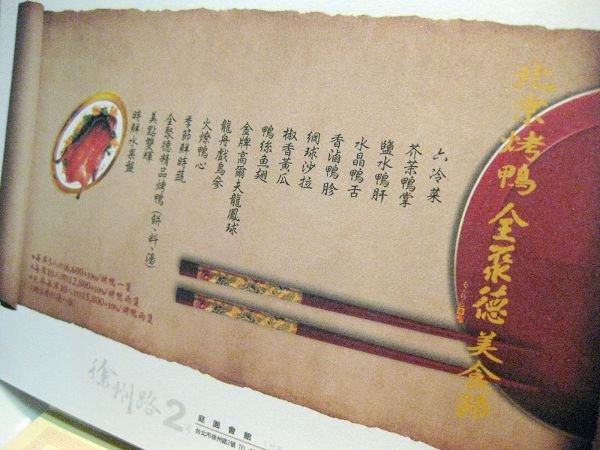 北京烤鴨 全聚德 美食節
六冷菜
芥茉鴨掌
鹽水鴨肝
水晶鴨舌
香滷鴨胗
網球沙拉
椒香黃瓜
鴨絲魚翅
金牌高爾夫龍鳳球
龍舟戲烏參
火燎鴨心
季節鮮時蔬
全聚德精品烤鴨(餅、料、湯)
美點雙輝
時鮮水果盤
徐州路2
庭園會館
台北市徐州路2號